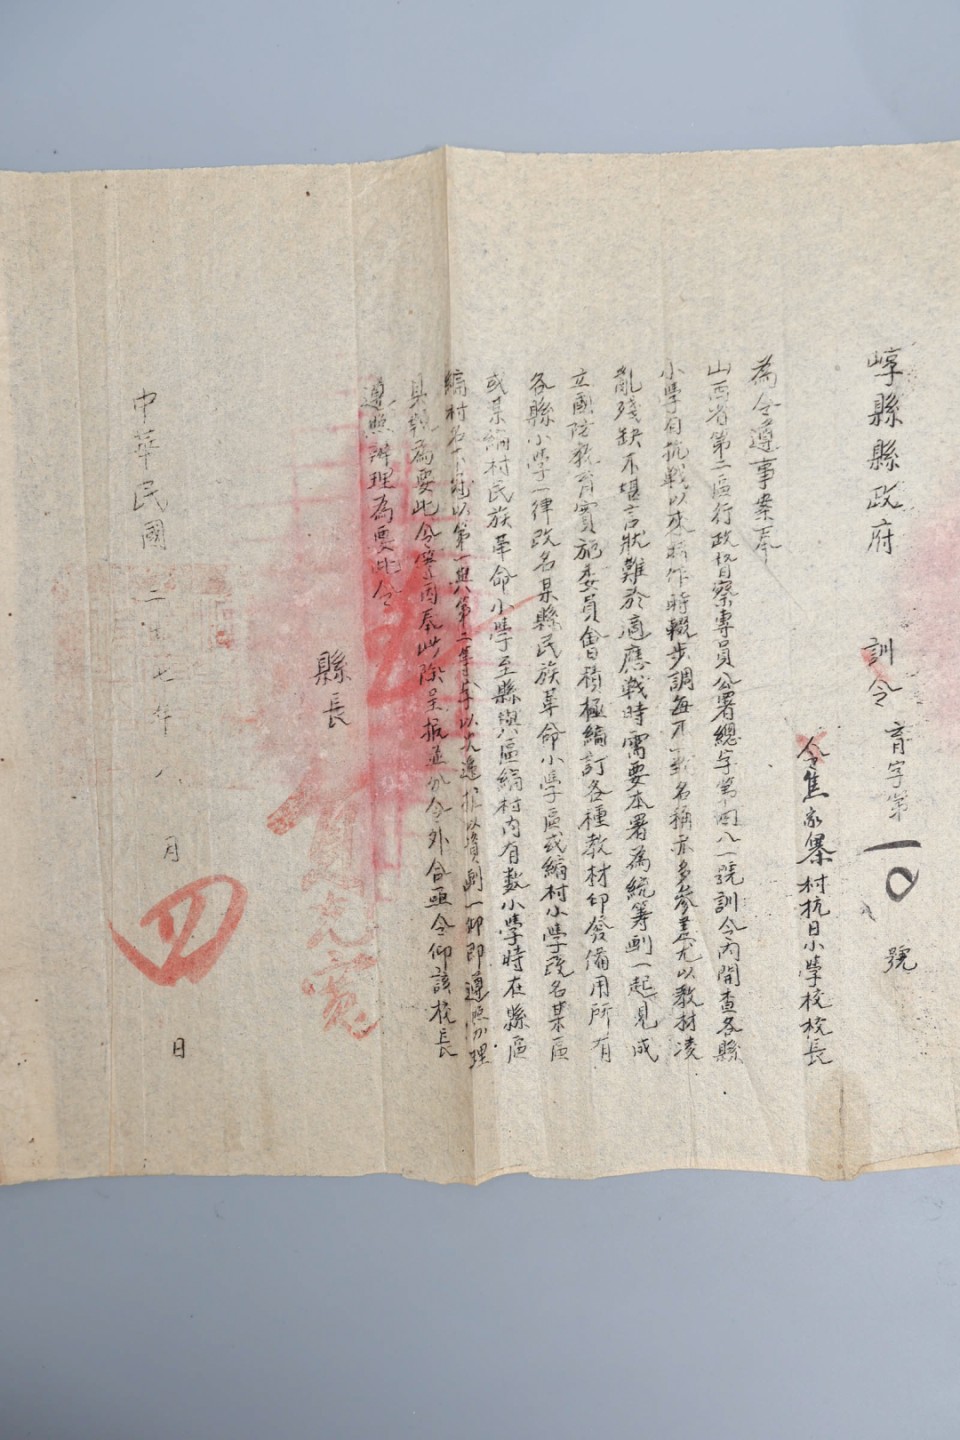 崞縣縣政府 訓令 育字第一0號
令焦家寨村抗日小學校校長
為令遵事案奉
山西省第二區行政督察專員公署總字第四八一號訓令內開查各縣
小學自抗戰以來工作時輟步調每不一致名稱亦多參差尤以教材凌
亂殘缺不堪言狀難於適應戰時需要本署為統籌劃一起見成
立國防教育實施委員會積極編訂各種教材印發備用所有
各縣小學一律改名某縣民族革命小學區或編村小學改名某區
或某編村民族革命小學至縣與區編村內有數小學時在縣區
編村名下冠以第一與第二等字以資劃一仰即遵照辦理
具報為要此令等因奉此除呈報並分令外合亟令仰該校長
遵照辦理為要此令
縣長
中華民國二十七年八月四日